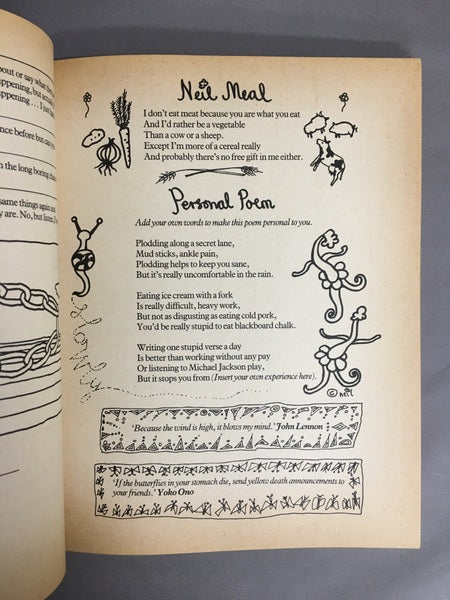 bout or say what they
ppening, but actually
ppening . . . I just
nce before but can
n the long boring chain
same things again and
y are. No, but listen, I'
Neil Meal
I don't eat meat because you are what you eat
And I'd rather be a vegetable
Than a cow or a sheep.
Except I'm more of a cereal really
And probably there's no free gift in me either.
Personal Poem
Add your own words to make this poem personal to you.
Plodding along a secret lane,
Mud sticks, ankle pain,
Plodding helps to keep you sane,
But it's really uncomfortable in the rain.
Eating ice cream with a fork
Is really difficult, heavy work,
But not as disgusting as eating cold pork,
You'd be really stupid to eat blackboard chalk.
Writing one stupid verse a day
Is better than working without any pay
Or listening to Michael Jackson play,
But it stops you from (Insert your own experience here).
slowly
© neil
'Because the wind is high, it blows my mind.' John Lennon
'If the butterflies in your stomach die, send yellow death announcements to
your friends.' Yoko Ono